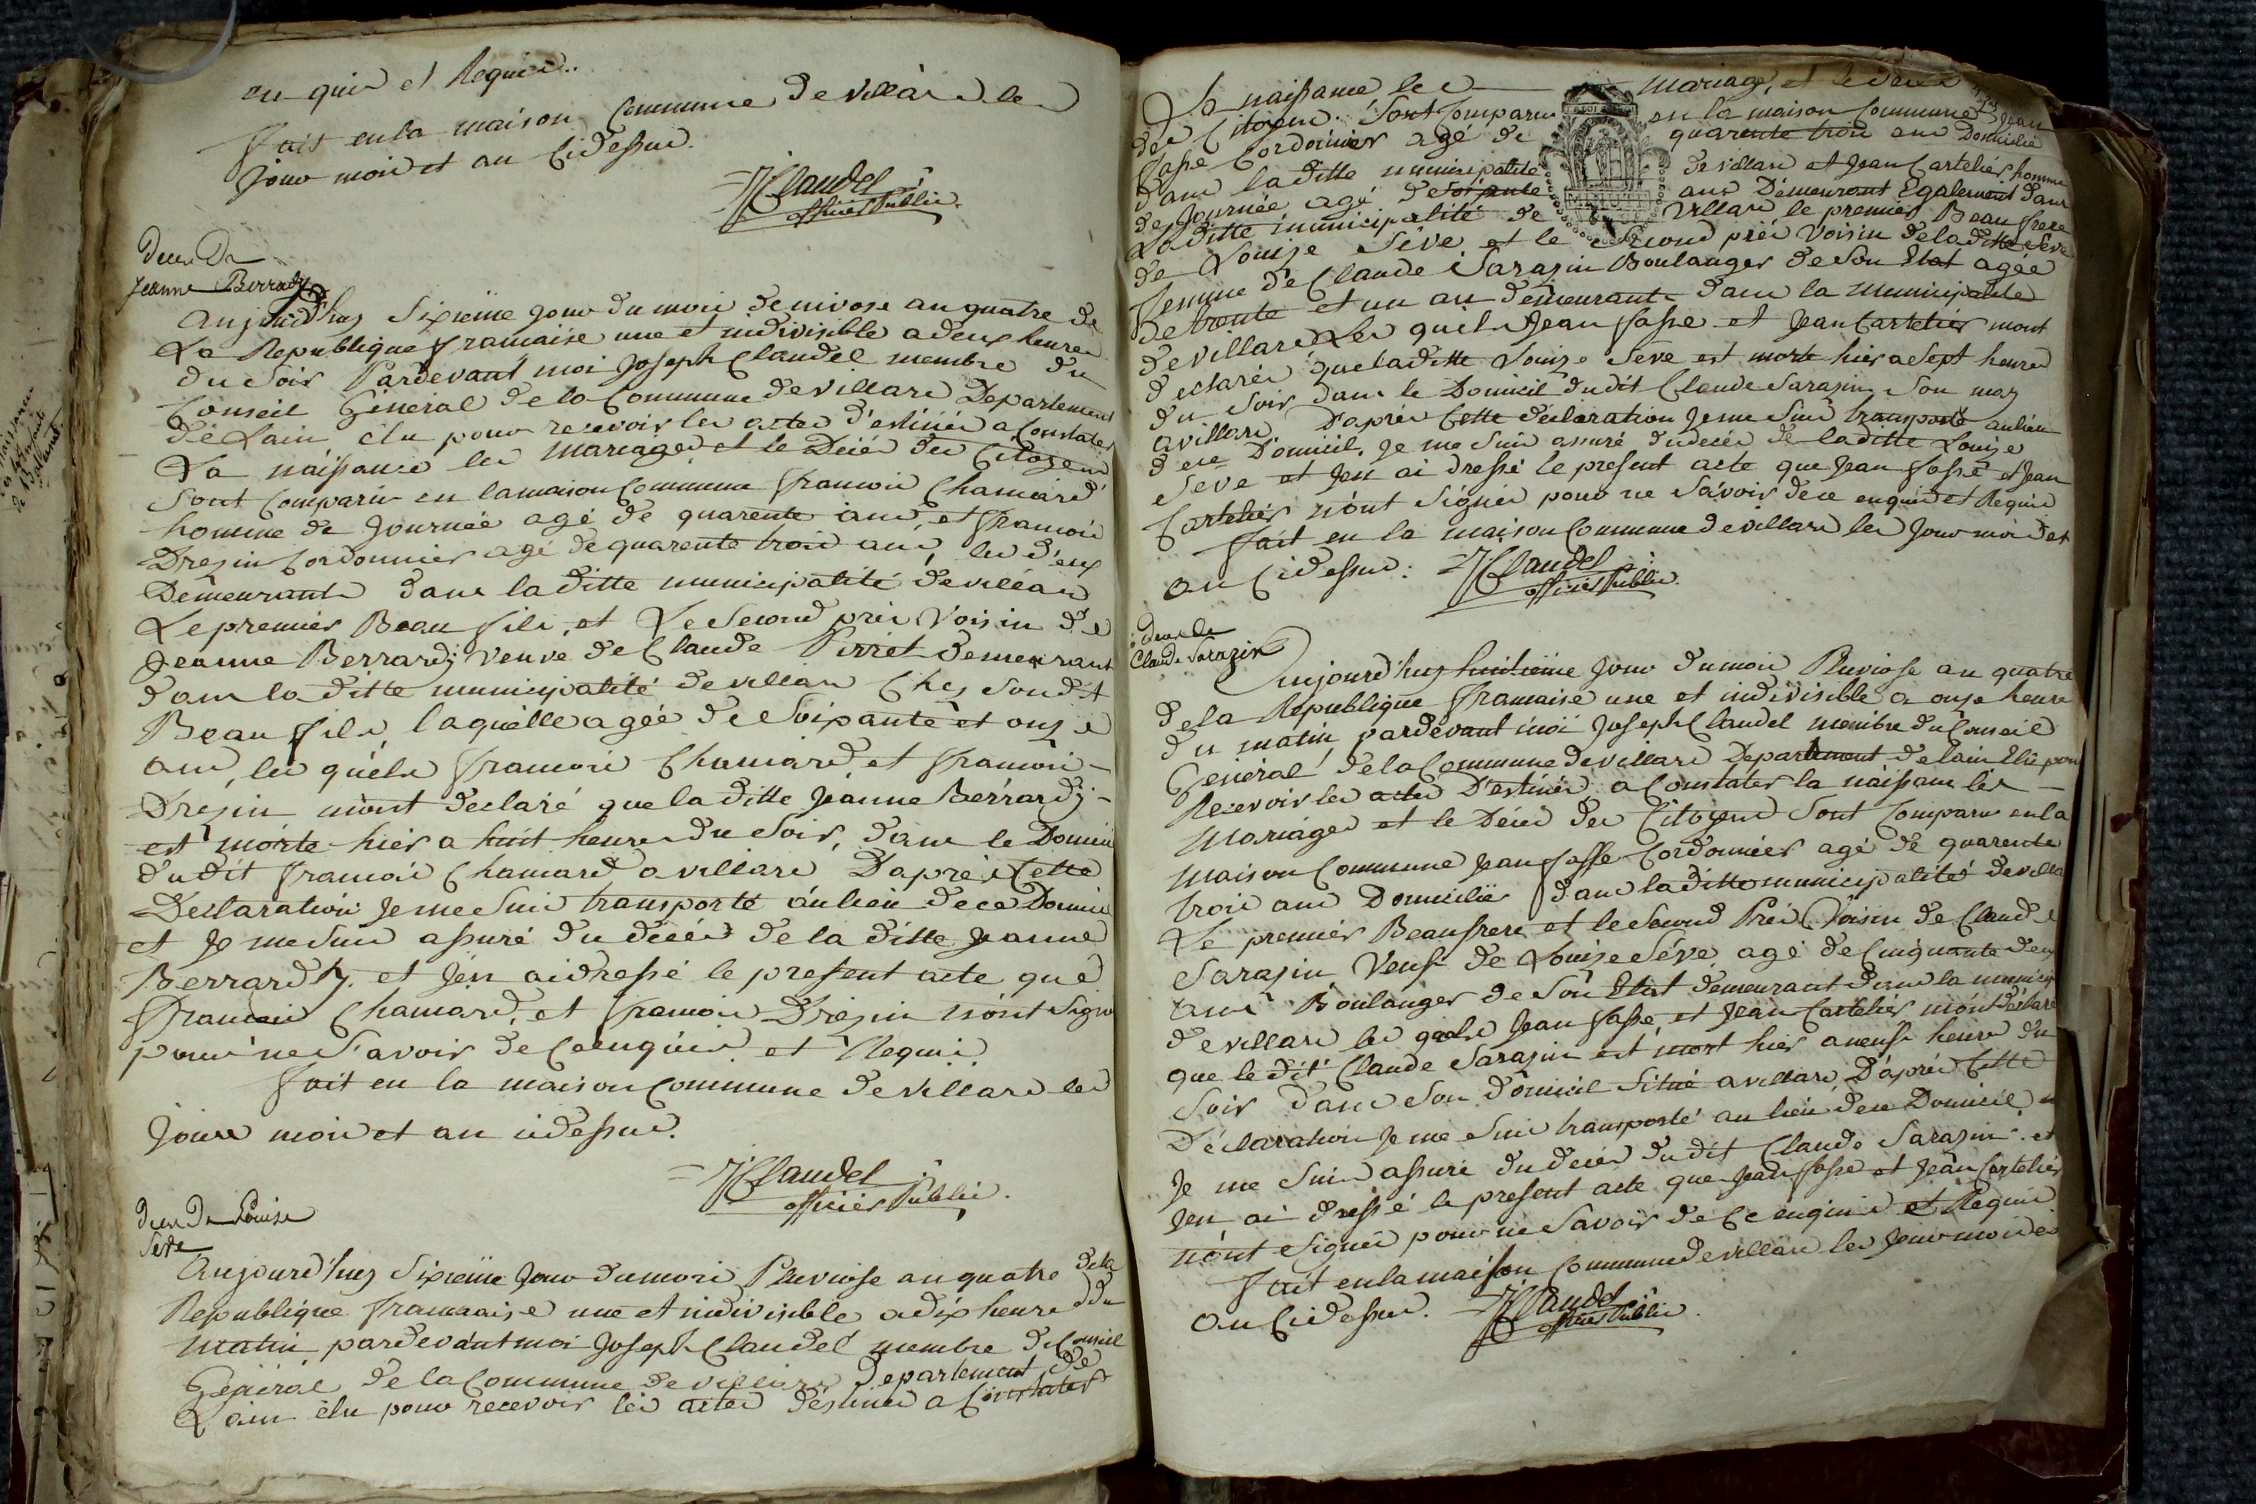 en quis et Requis..
Fait en la maison Commune de villars les
Jour mois et an Cidessus.
J Claudel
officier Public.
Deces De
Jeanne Berrardy
Aujourd'huy Sixieme jour du mois de nivose an quatre de
La Republique francaise une et indivisible a deux heures
du soir Pardevant moi Joseph Claudel membre du
Conseil Géneral de la Commune de villars Departement
de Lain élu pour recevoir les actes d'estinés a Constater
La naissance les mariages et le Décés des Citoyens
Sont Comparus en la maison Commune francois Chamard
homme de Journée agé de quarente ans, et francois
Dresin Cordonnier agé de quarente trois ans, les d'eux
Demeurants dans laditte municipalité de villars
Le premier Beau fils, et Le Second prés Voisin de
Jeanne Berrardy Veuve de Claude Pirret demeurant
dans laditte municipalité de villars Chez son dit
Beau fils, laquelle agée de Soixante et onze
ans, les quels francois Chamard, et francois
Dresin m'ont declaré que laditte Jeanne Berrardy
est morte hier a huit heures du Soir, dans le Domicil
dudit francois Chamard a villars D'aprés Cette
Declaration je me suis transporté au lieu de ce Domicil
et Je me suis assuré du décés de laditte Jeanne
Berrardy. et J'en ai dressé le present acte que
francois Chamard, et francois Dresin n'ont Signé
pour ne Savoir de Ce enquis et Requis
Fait en la maison Commune de villars les
Jours mois et an cidessus.
J Claudel
officier Public.
Deces De Louise
Seve
Aujourd'huy Sixieme Jour du mois Pluviose an quatre de la
Republique francaaise une et indivisible a dix heures du
matin, pardevant moi Joseph Claudel membre du Conseil
Géneral de la Commune de villars Departement de
Lain élu pour recevoir les actes déstinés a Constater
La naissance les mariages, et le décés
des Citoyens. Sont Comparus en la maison Commune Jean
fasse Cordonnier agé de quarente trois ans Domicilié
dans laditte municipalité de villars et Jean Cartelier homme
de Journée agé de Soixante ans Démeurant Egalement dans
Laditte municipalité de Villars le premier Beau frere
de Louize Séve et le Second prés Voisin de laditte Séve
femme de Claude Sarazin Boulanger de Son Etat agée
de trente et un an demeurante dans la municipalité
de villars Les quels Jean fasse et Jean Cartelier mont
declarés que laditte Louize Seve est morte hier a Sept heures
du Soir dans le Domicil dudit Claude Sarazin Son mary
a villars D'aprés Cette déclaration Je me Suis transporté au lieu
de ce Domicil, Je me suis assuré du decés de laditte Louize
Seve et Jen ai dressé le present acte que Jean fasse et Jean
Cartelier n'ont Signés pour ne Savoir de ce enquis et Requis
Fait en la maison Commune de villars les Jour mois et
an Cidessus: J Claudel
officier Public.
Deces de
Claude Sarazin
Aujourd'huy huitieme Jour du mois Pluviose an quatre
de la Republique francaise une et indivisible a onze heures
du matin pardevant moi Joseph Claudel membre du Conseil
Géneral de la Commune de villars Departement de lain Elu pour
Recevoir les actes D'estinés a Constater la naissance les
Mariages et le Décés des Citoyens Sont Comparus en la
Maison Commune Jean fasse Cordonnier agé de quarente
trois ans Domiciliés dans laditte municipalité de villars
Le premier Beaufrere et le Second Prés Voisin de Claude
Sarazin Veuf de Louise Séve agé de Cinquante deux
ans Boulanger de Son Etat demeurant dans la municip
de villars les quels Jean fasse et Jean Cartelier mont déclaré
que le dit Claude Sarazin est mort hier a neuf heures du
Soir dans Son domicil Situé a villars, D'aprés Cette
Déclaration Je me Suis transporté au lieu de ce Domicil
Je me Suis assuré du decés dudit Claude Sarazin. et
Jen ai dressé le present acte que Jean fasse et Jean Cartelier
n'ont Signés pour ne Savoir de Ce enquis et Requis
Fait en la maison Commune de villars les Jour mois et
an Cidessus. J Claudel
officier Public.